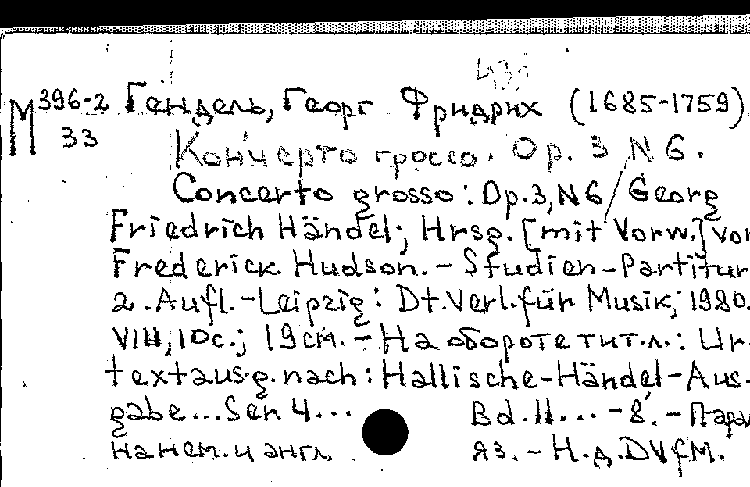 М 396-2 Гендель, Георг Фридрих (1685-1759)
33 Концерто гроссо. Ор. 3 N 6.
Concerto grosso: Op.3, N6 / Georg
Friedrich Händel; Hrsg. [mit Vorw.] von
Frederick Hudson. - Studien-Partitur
2. Aufl. - Leipzig: Dt. Verl. für Musik, 1980.
VIII, 10c.; 19 см. - На обороте тит.л.: Ur-
textausg. nach: Hallische-Händel-Aus-
gabe... Ser 4... Bd. 11... - 8. - Парал
на нем. и англ. яз. - Н.д. DVfM.